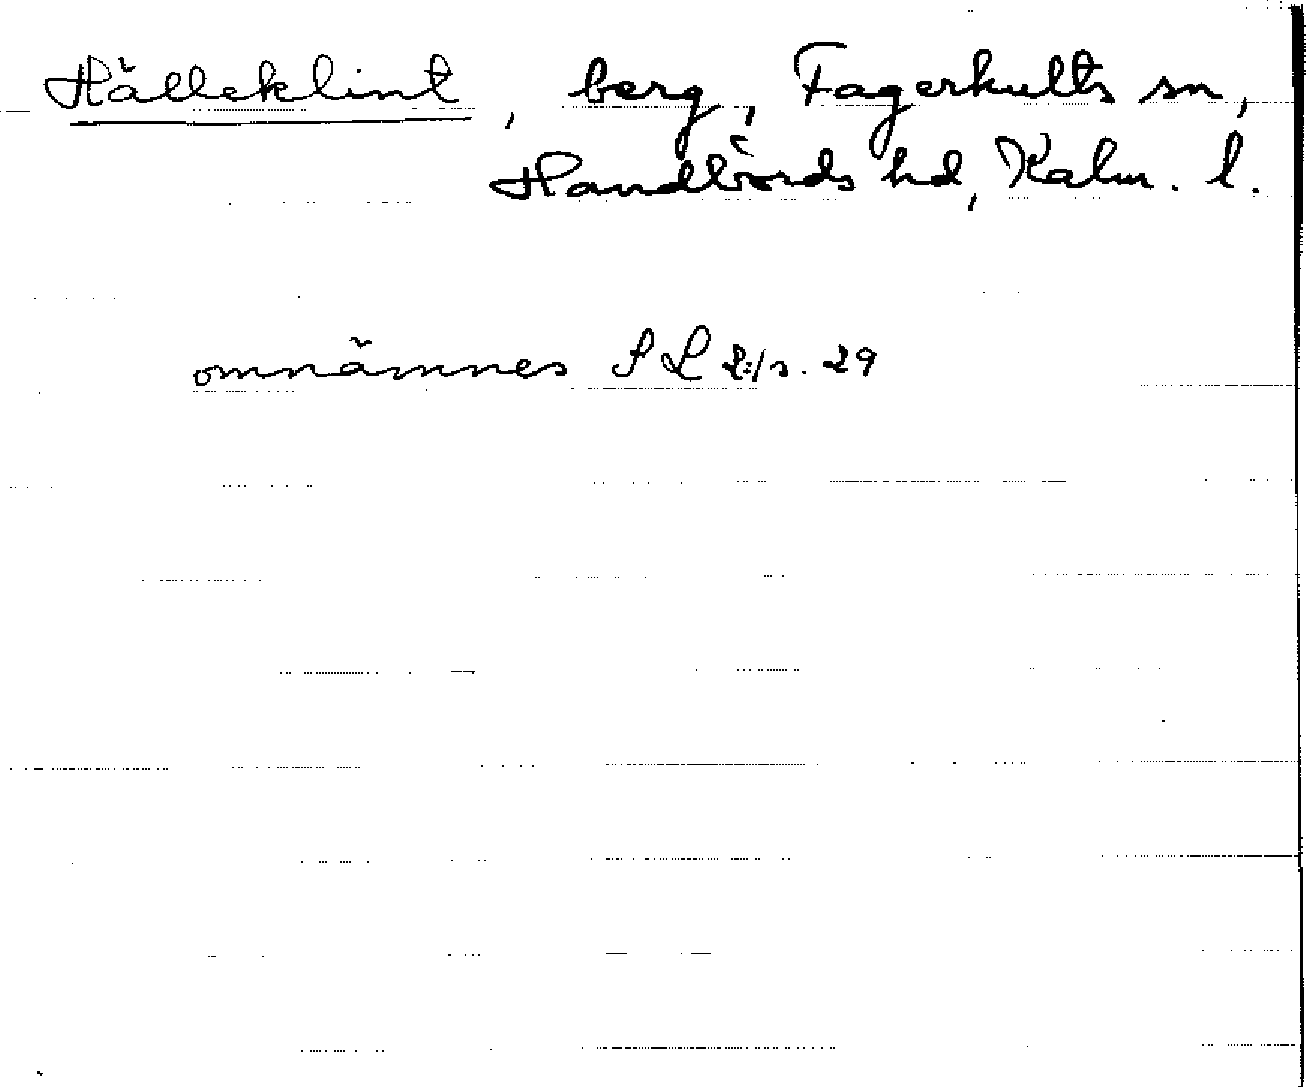 Hälleklint, berg, Fagerhults sn,
Handbörds hd, Kalm. l.
omnämnes SL 2:/s. 29